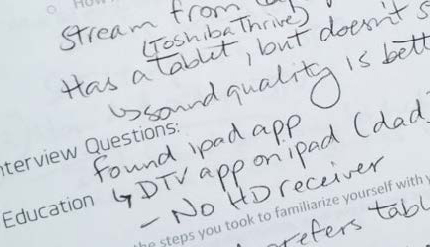 Stream from
(Toshiba Thrive)
Has a tablet, but doesn't
↳ sound quality is
nterview Questions:
found ipad app
Education ↳ DTV app on ipad (dad
- No HD receiver
the steps you took to familiarize yourself with